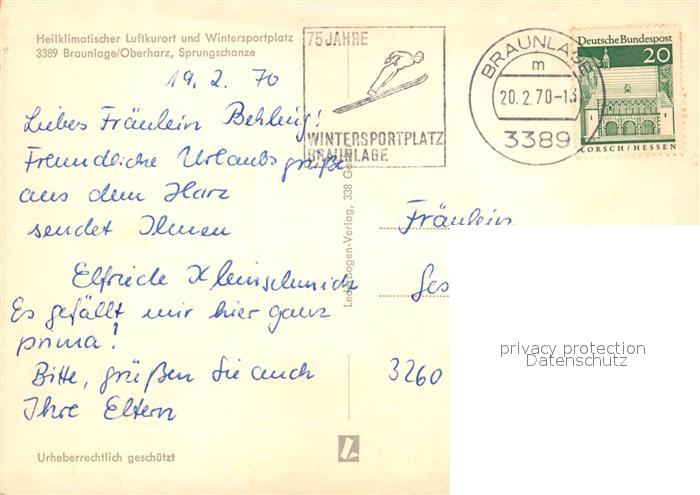 Heilklimatischer Luftkurort und Wintersportplatz
3389 Braunlage/Oberharz, Sprungschanze
75 JAHRE
WINTERSPORTPLATZ
BRAUNLAGE
BRAUNLAGE
m
20.2.70-13
3389
Deutsche Bundespost
20
LORSCH/HESSEN
19. 2. 70
Liebes Fräulein Behling!
Freundliche Urlaubsgrüße
aus dem Harz
sendet Ihnen
Elfriede Kleinschmidt
Es gefällt mir hier ganz
prima!
Bitte, grüßen Sie auch
Ihre Eltern
Urheberrechtlich geschützt
Fräulein
3260
privacy protection
Datenschutz